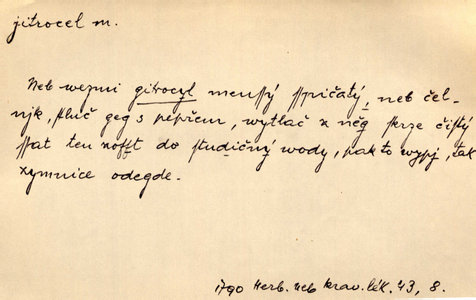 jitrocel m.
Neb wezmi gitrocyl menssý sspičatý, neb čel-
njk, stluč geg s pepřem, wytlač z něg skrze čistý
ssat ten sofft do studičný wody, pak to wypj, tak
zymnice odegde.
1790 Herb. neb krav. lék. 43, 8.